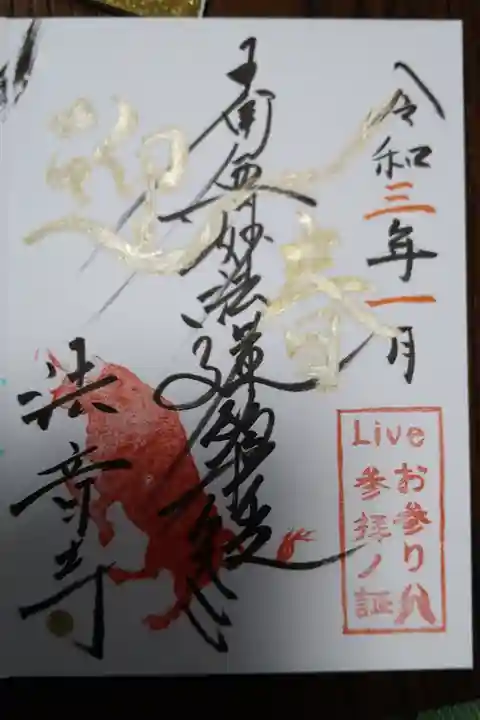 令和三年一月
迎春
南無妙法蓮華経
法音寺
Liveお参り
参拝ノ証